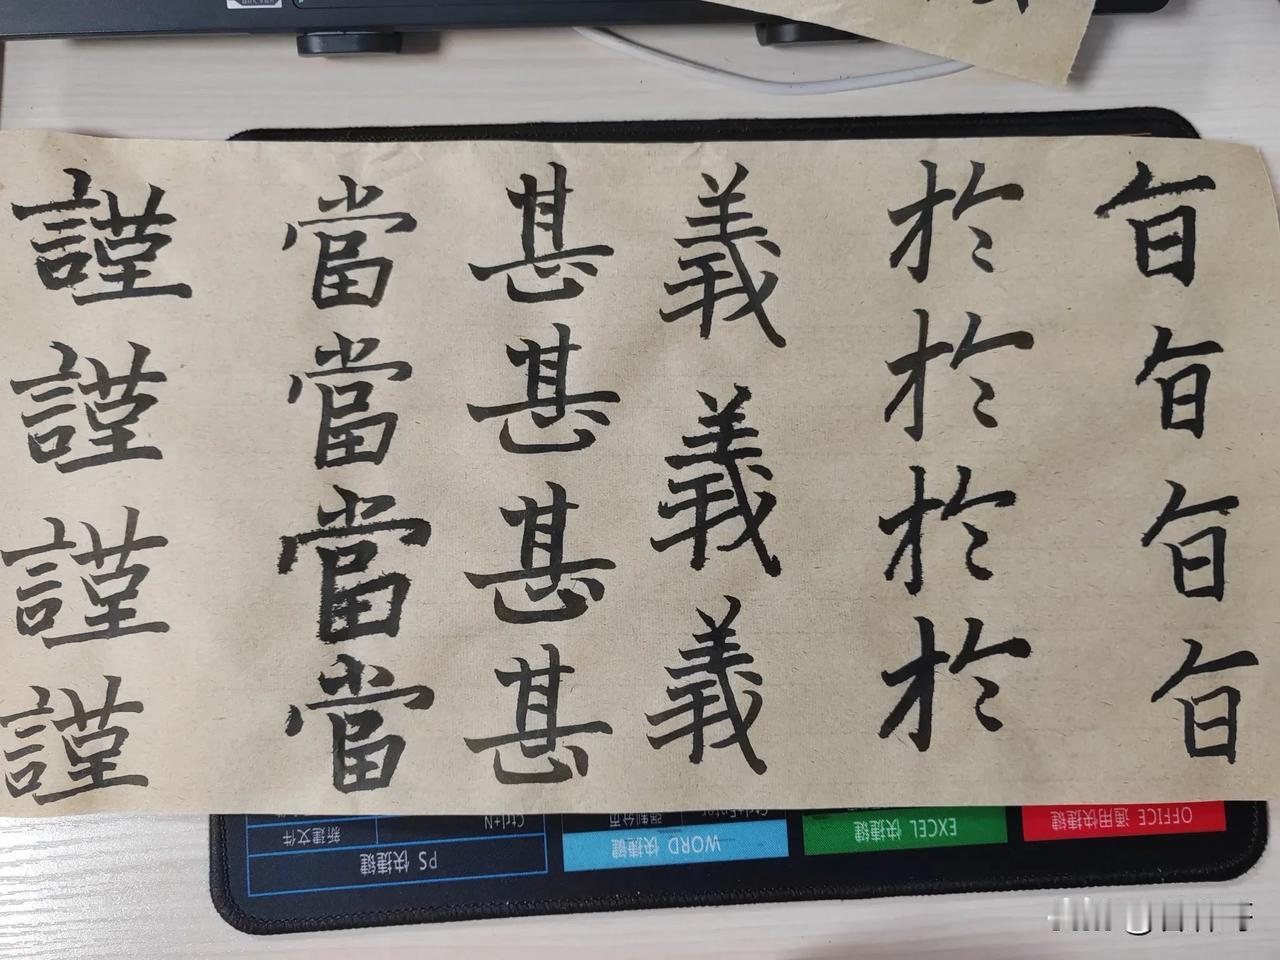 旨旨旨旨
於於於於
義義義
甚甚甚甚
當當當當
謹謹謹謹
OFFICE 通用快捷键
EXCEL 快捷键
WORD 快捷键
强制分页 Ctrl+Enter
PS 快捷键
新建文件 Ctrl+N